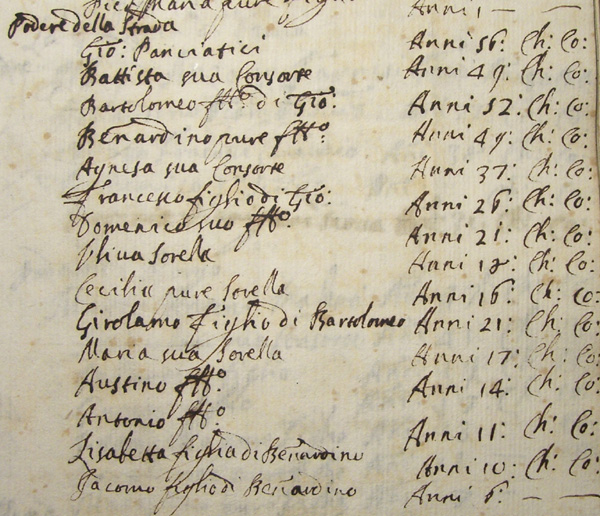 Pier Maria pure figlio Anni 1 — —
Podere della Strada
Gio: Panciatici Anni 56: Ch: Co:
Battista sua Consorte Anni 49: Ch: Co:
Bartolomeo ffllo di Gio: Anni 52: Ch: Co:
Benardino pure ffllo: Anni 49: Ch: Co:
Agnesa sua Consorte Anni 37: Ch: Co:
Francesco figlio di Gio: Anni 26: Ch: Co:
Domenico suo ffllo: Anni 21: Ch: Co:
Uliva Sorella Anni 18: Ch: Co:
Cecilia pure Sorella Anni 16: Ch: Co:
Girolamo figlio di Bartolomeo Anni 21: Ch: Co:
Maria sua Sorella Anni 17: Ch: Co:
Austino ffllo: Anni 14: Ch: Co:
Antonio ffllo: Anni 11: Ch: Co:
Lisabetta figlia di Benardino Anni 10: Ch: Co:
Jacomo figlio di Benardino Anni 6: — —